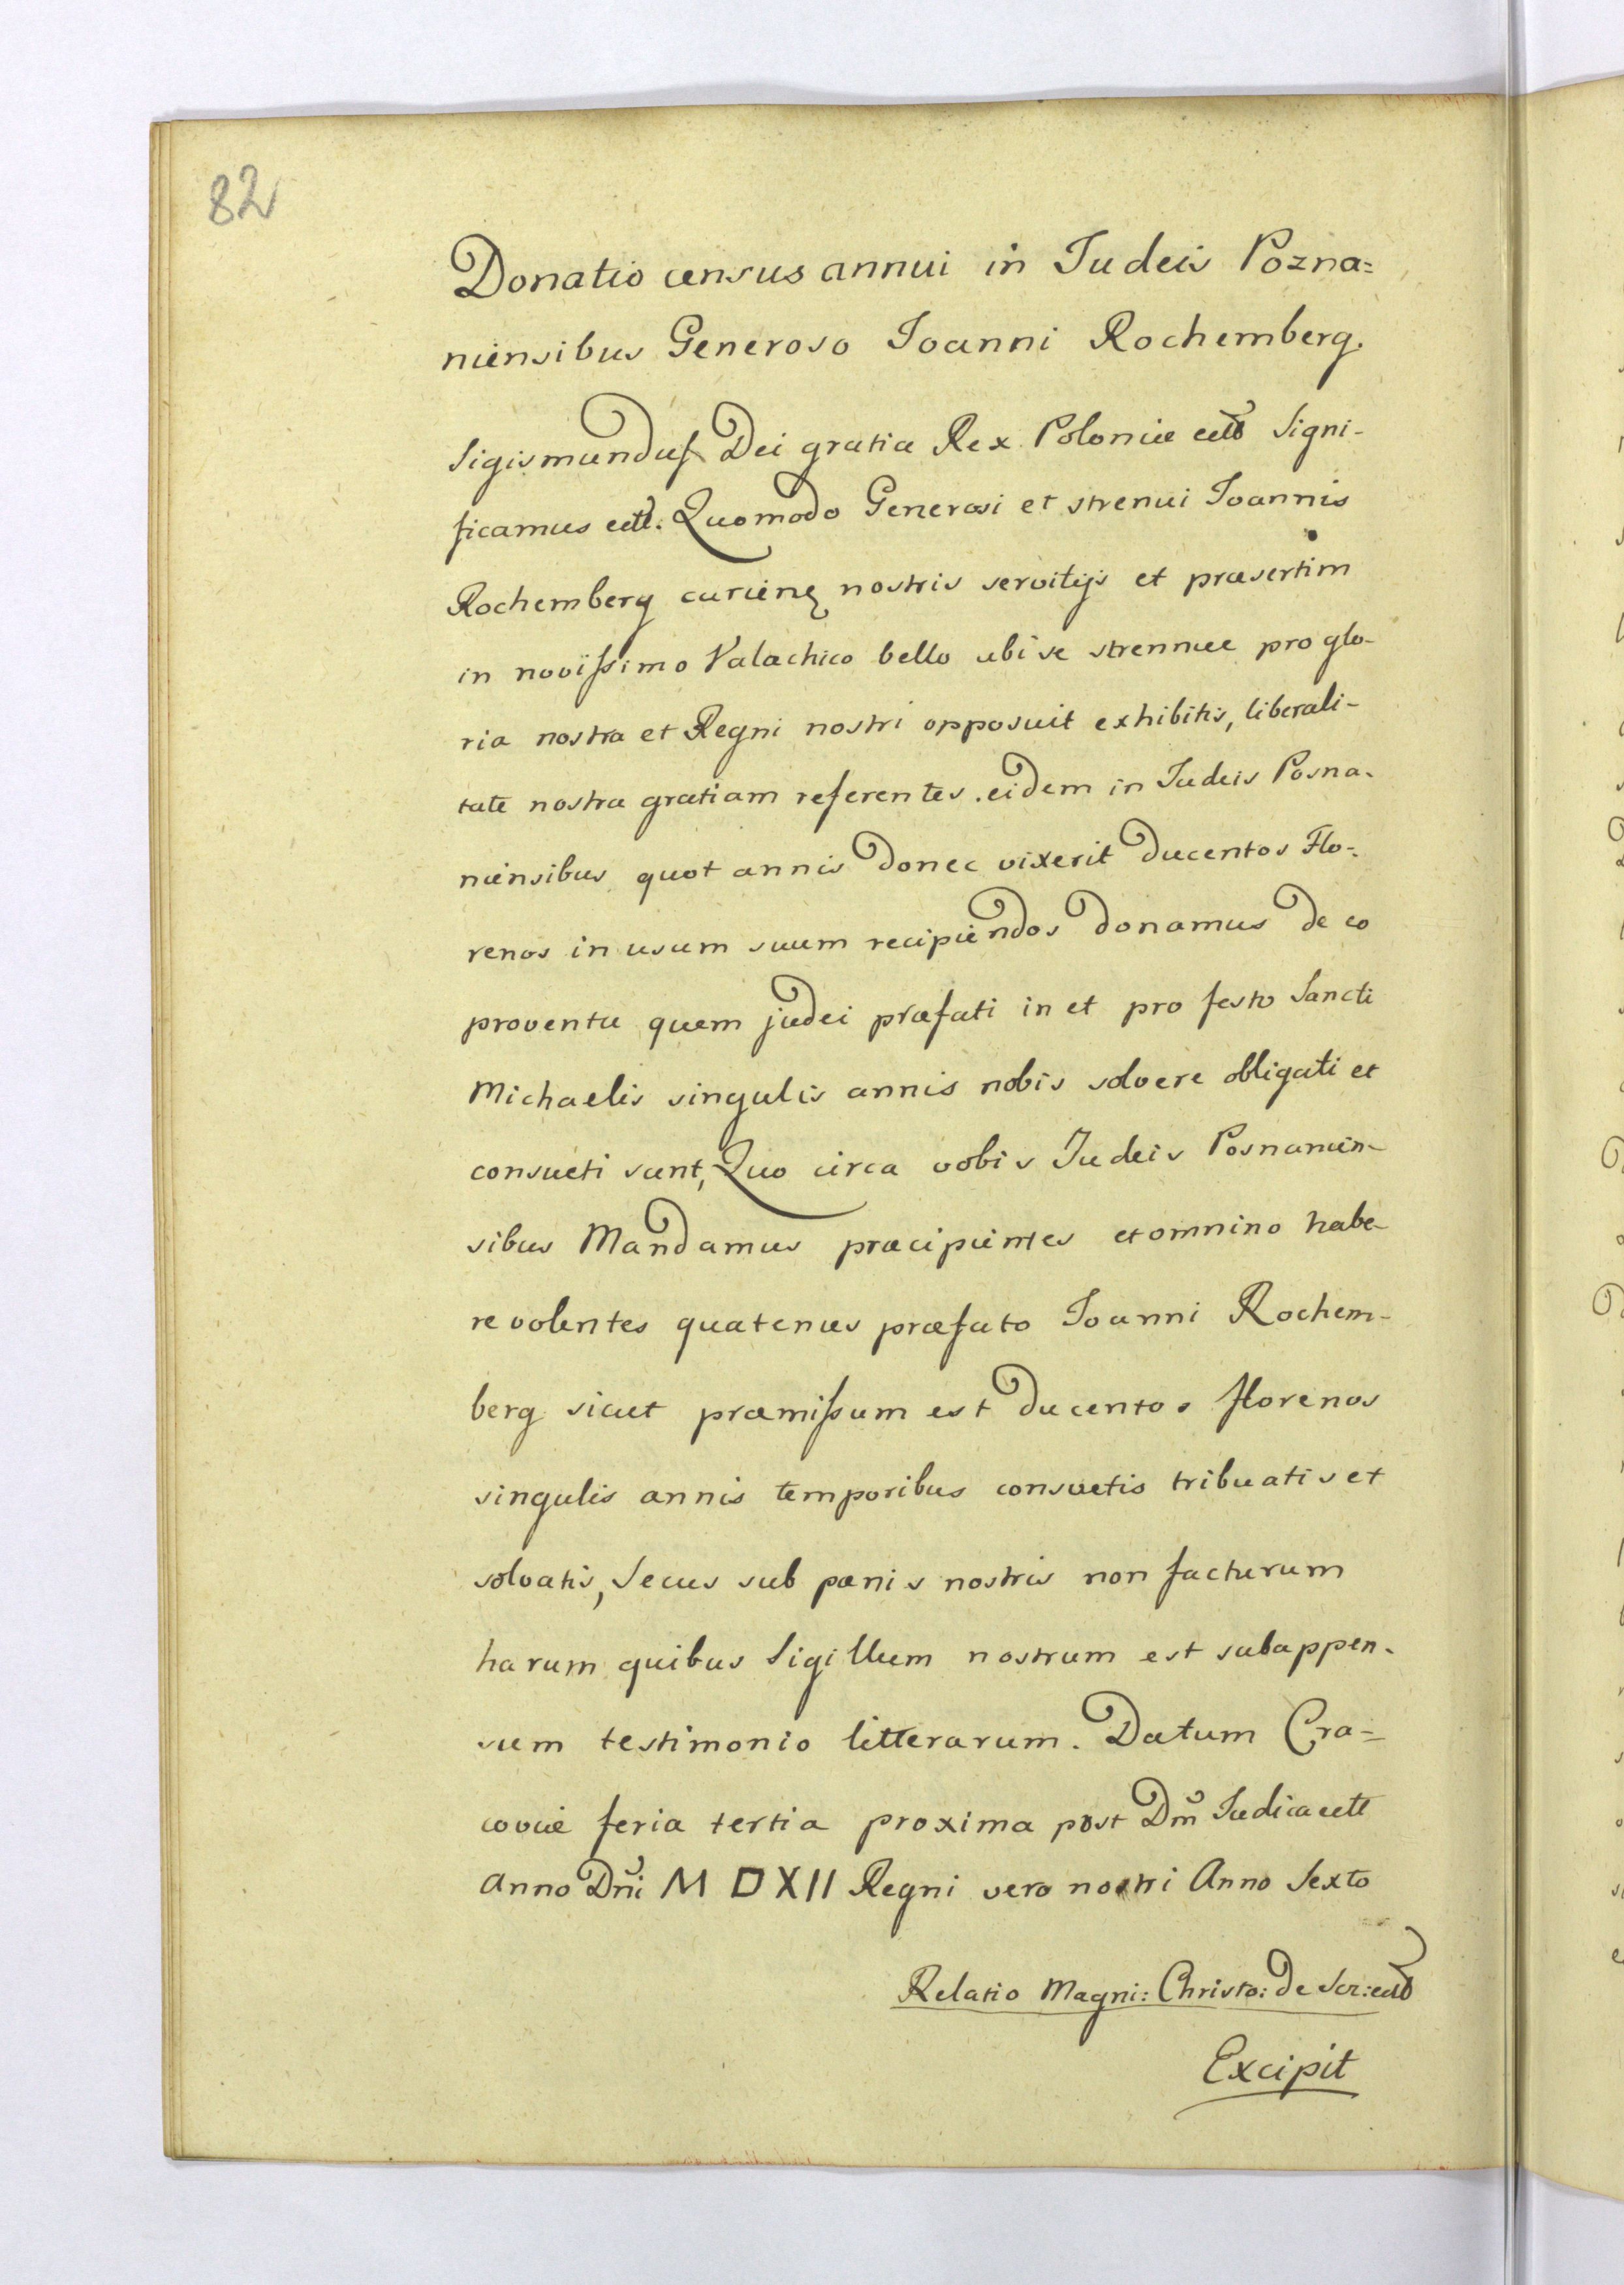 82
Donatio census annui in Judeis Pozna=
niensibus Generoso Joanni Rochemberg.
Sigismundus Dei gratia Rex Poloniæ cetto Signi-
ficamus cett. Quomodo Generosi et strenui Joannis
Rochemberg curiens nostris servitijs et præsertim
in novissimo Valachico bello ubi se strennue pro glo-
ria nostra et Regni nostri opposuit exhibitis, liberali-
tate nostra gratiam referentes. eidem in Judeis Posna-
niensibus quot annis donec vixerit ducentos Flo-
renos in usum suum recipiendos donamus de eo
proventu quem judei præfati in et pro festo Sancti
Michaelis singulis annis nobis solvere obligati et
consueti sunt, Quo circa vobis Judeis Posnanien-
sibus Mandamus præcipientes et omnino habe-
re volentes quatenus præfato Joanni Rochem-
berg sicut præmissum est ducentos florenos
singulis annis temporibus consvetis tribuatis et
solvatis, Secus sub pœnis nostris non facturum
harum quibus Sigillum nostrum est subappen-
sum testimonio litterarum. Datum Cra=
coviæ feria tertia proxima post Dm̃ Judica cett
Anno Dñi M D XII Regni vero nostri Anno Sexto
Relatio Magni: Christo: de Scz: cetto
Excipit